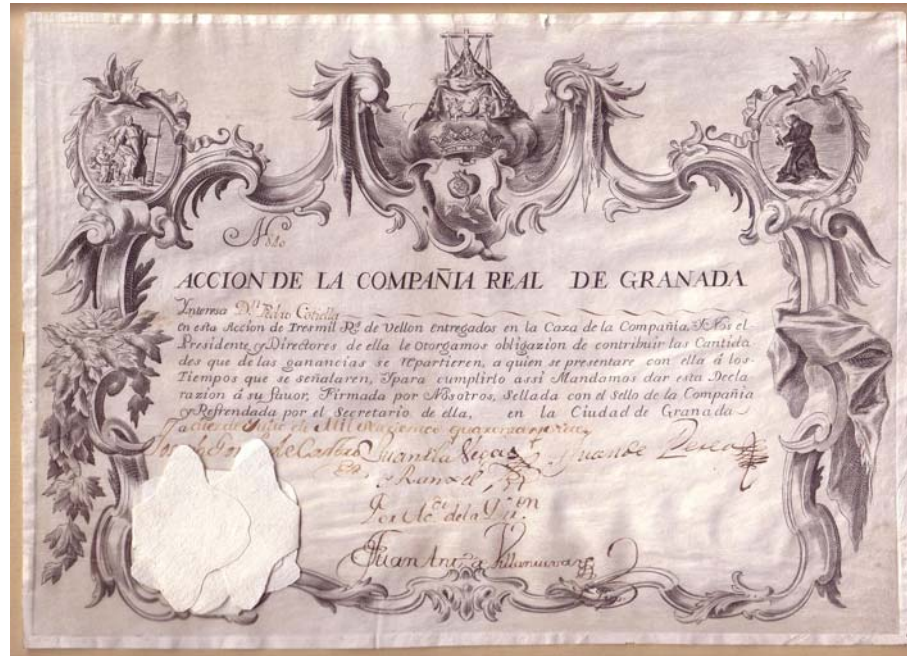 Nº 820
ACCION DE LA COMPAÑIA REAL DE GRANADA
Ynteresa Dⁿ Pedro Cotiella
en esta Accion de Tresmil Rˢ de Vellon entregados en la Caxa de la Compañia. Y Nòs el
Presidente, y Directores de ella le otorgamos obligazion de contribuir las Cantida
des que de las ganancias se repartieren, a quien se presentare con ella â los
Tiempos que se señalaren, Ypara cumplirlo assi Mandamos dar esta Decla
razion â su favor, Firmada por Nosotros, Sellada con el Sello de la Compañia
y Refrendada por el Secretario de ella, en la Ciudad de Granada
de Mil
de Castro Juan de la Vega Juan de Perea
y Rangel
Por Acᵈᵒ de la Dirᵒⁿ
Juan Antᵒ Villanueva